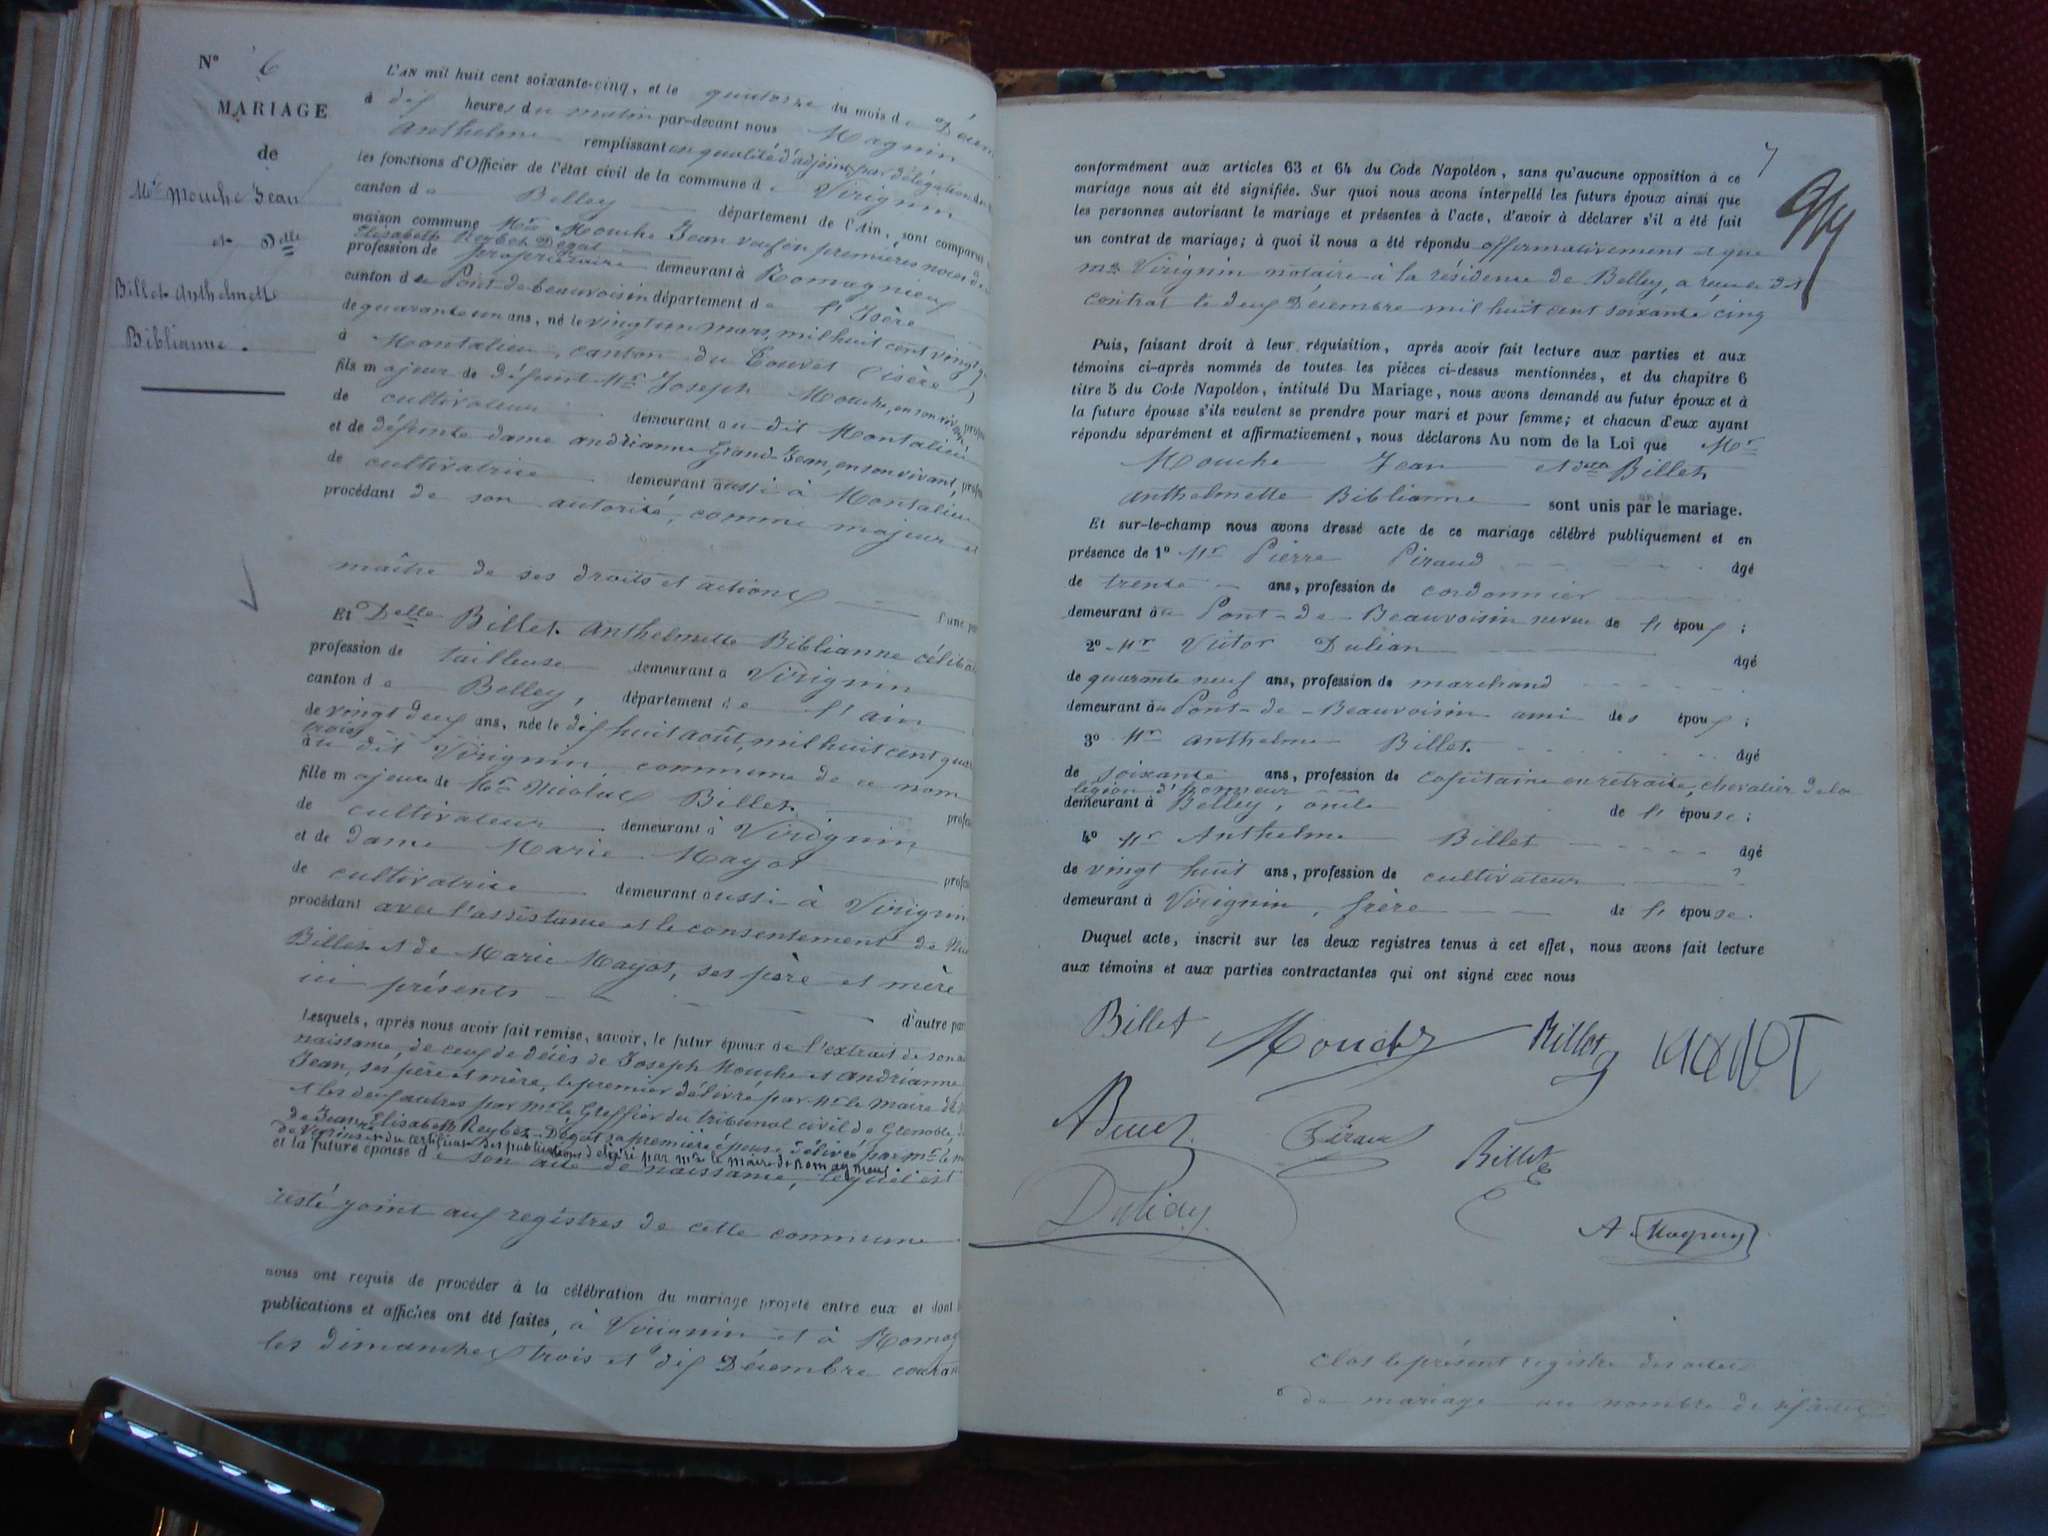 N° 6
MARIAGE
de
Mr Mouche Jean
et Delle
Billet Anthelmette
Biblianne.
L'AN mil huit cent soixante-cinq, et le quatorze du mois de Décem
à dix heures du matin par-devant nous Magnin
Anthelme remplissant en qualité d'adjoint, par délégation du
les fonctions d'Officier de l'état civil de la commune de Virignin
canton de Belley département de l'Ain, sont comparus
maison commune Mr Mouche Jean veuf en premières noces de
Elisabeth Reybet Degat
profession de propriétaire demeurant à Romagnieu
canton de Pont-de-beauvoisin département de l'Isère
de quarante un ans, né le vingt un mars, mil huit cent vingt
à Montalieu, canton du Touvet (isère)
fils majeur de défunt Mr Joseph Mouche, en son vivant, profes
de cultivateur demeurant au dit Montalieu
et de défunte dame andrianne Grand-Jean, en son vivant, profes
de cultivatrice demeurant aussi à Montalieu
procédant de son autorité, comme majeur et
maître de ses droits et actions l'une par
Et Delle Billet Anthelmette Biblianne céliba
profession de tailleuse demeurant à Virignin
canton de Belley, département de l'ain
de vingt deux ans, née le dix huit août, mil huit cent quar
trois
au dit Virignin, commune de ce nom
fille majeure de Mr Nicolas Billet profes
de cultivateur demeurant à Virignin
et de dame Marie Mayot profes
de cultivatrice demeurant aussi à Virignin
procédant avec l'assistance et le consentement de
Billet et de Marie Mayot, ses père et mère
ici présents d'autre par
Lesquels, après nous avoir fait remise, savoir, le futur époux de l'extrait de son
naissance, de ceux de décès de Joseph Mouche et andrianne
Jean, ses père et mère, le premier délivré par Mr le Maire de
et les deux autres par Mr le Greffier du tribunal civil de Grenoble,
de Jeanne Elisabeth Reybet-Degat sa première épouse, délivré par Mr le m
et du certificat des publications délivré par Mr le Maire de Romagnieu
et la future épouse de son acte de naissance, lequel est
resté joint aux registres de cette commune
nous ont requis de procéder à la célébration du mariage projeté entre eux et dont
publications et affiches ont été faites, à Virignin et à Romag
les dimanches trois et dix Décembre couran
7
conformément aux articles 63 et 64 du Code Napoléon, sans qu'aucune opposition à ce
mariage nous ait été signifiée. Sur quoi nous avons interpellé les futurs époux ainsi que
les personnes autorisant le mariage et présentes à l'acte, d'avoir à déclarer s'il a été fait
un contrat de mariage; à quoi il nous a été répondu affirmativement et que
me Virignin notaire à la résidence de Belley, a reçu le dit
contrat le deux Décembre mil huit cent soixante cinq
Puis, faisant droit à leur réquisition, après avoir fait lecture aux parties et aux
témoins ci-après nommés de toutes les pièces ci-dessus mentionnées, et du chapitre 6
titre 5 du Code Napoléon, intitulé Du Mariage, nous avons demandé au futur époux et à
la future épouse s'ils veulent se prendre pour mari et pour femme; et chacun d'eux ayant
répondu séparément et affirmativement, nous déclarons Au nom de la Loi que Mr
Mouche Jean et delle Billet
Anthelmette Biblianne sont unis par le mariage.
Et sur-le-champ nous avons dressé acte de ce mariage célébré publiquement et en
présence de 1° Mr Pierre Giraud âgé
de trente ans, profession de cordonnier
demeurant au Pont-de-Beauvoisin neveu de l'époux;
2° Mr Victor Dulian âgé
de quarante neuf ans, profession de marchand
demeurant au Pont-de-Beauvoisin ami des époux;
3° Mr Anthelme Billet âgé
de soixante ans, profession de capitaine en retraite, chevalier de la
légion d'honneur
demeurant à Belley, oncle de l'épouse;
4° Mr Anthelme Billet âgé
de vingt huit ans, profession de cultivateur
demeurant à Virignin, frère de l'épouse.
Duquel acte, inscrit sur les deux registres tenus à cet effet, nous avons fait lecture
aux témoins et aux parties contractantes qui ont signé avec nous
Billet Mouche Billet MAYOT
Giraud Billet
Dulian
A. Magnin
Clos le présent registre des actes
de mariage au nombre de six actes